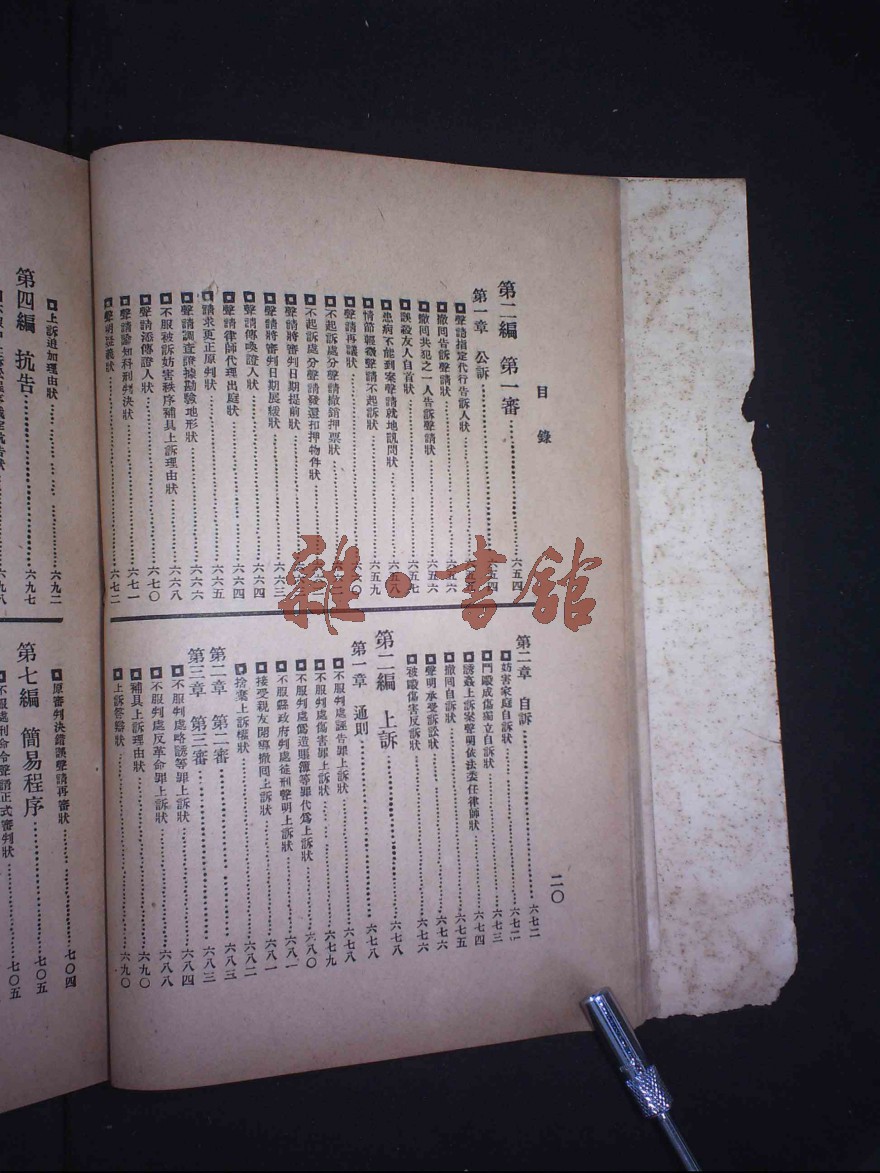 目錄
二〇
第二編 第一審……六五四
第一章 公訴……六五四
聲請指定代行告訴人狀
撤回告訴聲請狀……六五六
撤回共犯之一人告訴聲請狀……六五六
誤殺友人自首狀……六五七
患病不能到案聲請就地訊問狀……六五八
情節輕微聲請不起訴狀……六五九
聲請再議狀
不起訴處分聲請撤銷押票狀
不起訴處分聲請發還扣押物件狀
聲請將審判日期提前狀
聲請將審判日期展緩狀……六六三
聲請傳喚證人狀……六六四
聲請律師代理出庭狀……六六四
請求更正原判狀……六六五
聲請調查證據勘驗地形狀……六六六
不服被訴妨害秩序補具上訴理由狀……六六八
聲請添傳證人狀……六七〇
聲請諭知科刑判決狀……六七一
聲明疑義狀……六七二
第二章 自訴……六七二
妨害家庭自訴狀……六七二
鬥毆成傷獨立自訴狀……六七三
誘姦上訴案聲明依法委任律師狀……六七四
撤回自訴狀……六七五
聲明承受訴訟狀……六七六
被毆傷害反訴狀……六七六
第二編 上訴……六七八
第一章 通則……六七八
不服判處誣告罪上訴狀……六七八
不服判處傷害罪上訴狀……六七九
不服判處僞造賬簿等罪代爲上訴狀……六八〇
不服縣政府判處徒刑聲明上訴狀……六八一
接受親友開導撤回上訴狀……六八一
捨棄上訴權狀……六八二
第二章 第二審……六八三
第三章 第三審……六八三
不服判處略誘等罪上訴狀……六八四
不服判處反革命罪上訴狀……六八八
補具上訴理由狀……六九〇
上訴答辯狀……六九〇
上訴追加理由狀……六九二
第四編 抗告……六九七
六九八
原審判決錯誤聲請再審狀……七〇四
第七編 簡易程序……七〇五
不服處刑命令聲請正式審判狀……七〇五
雜·書館